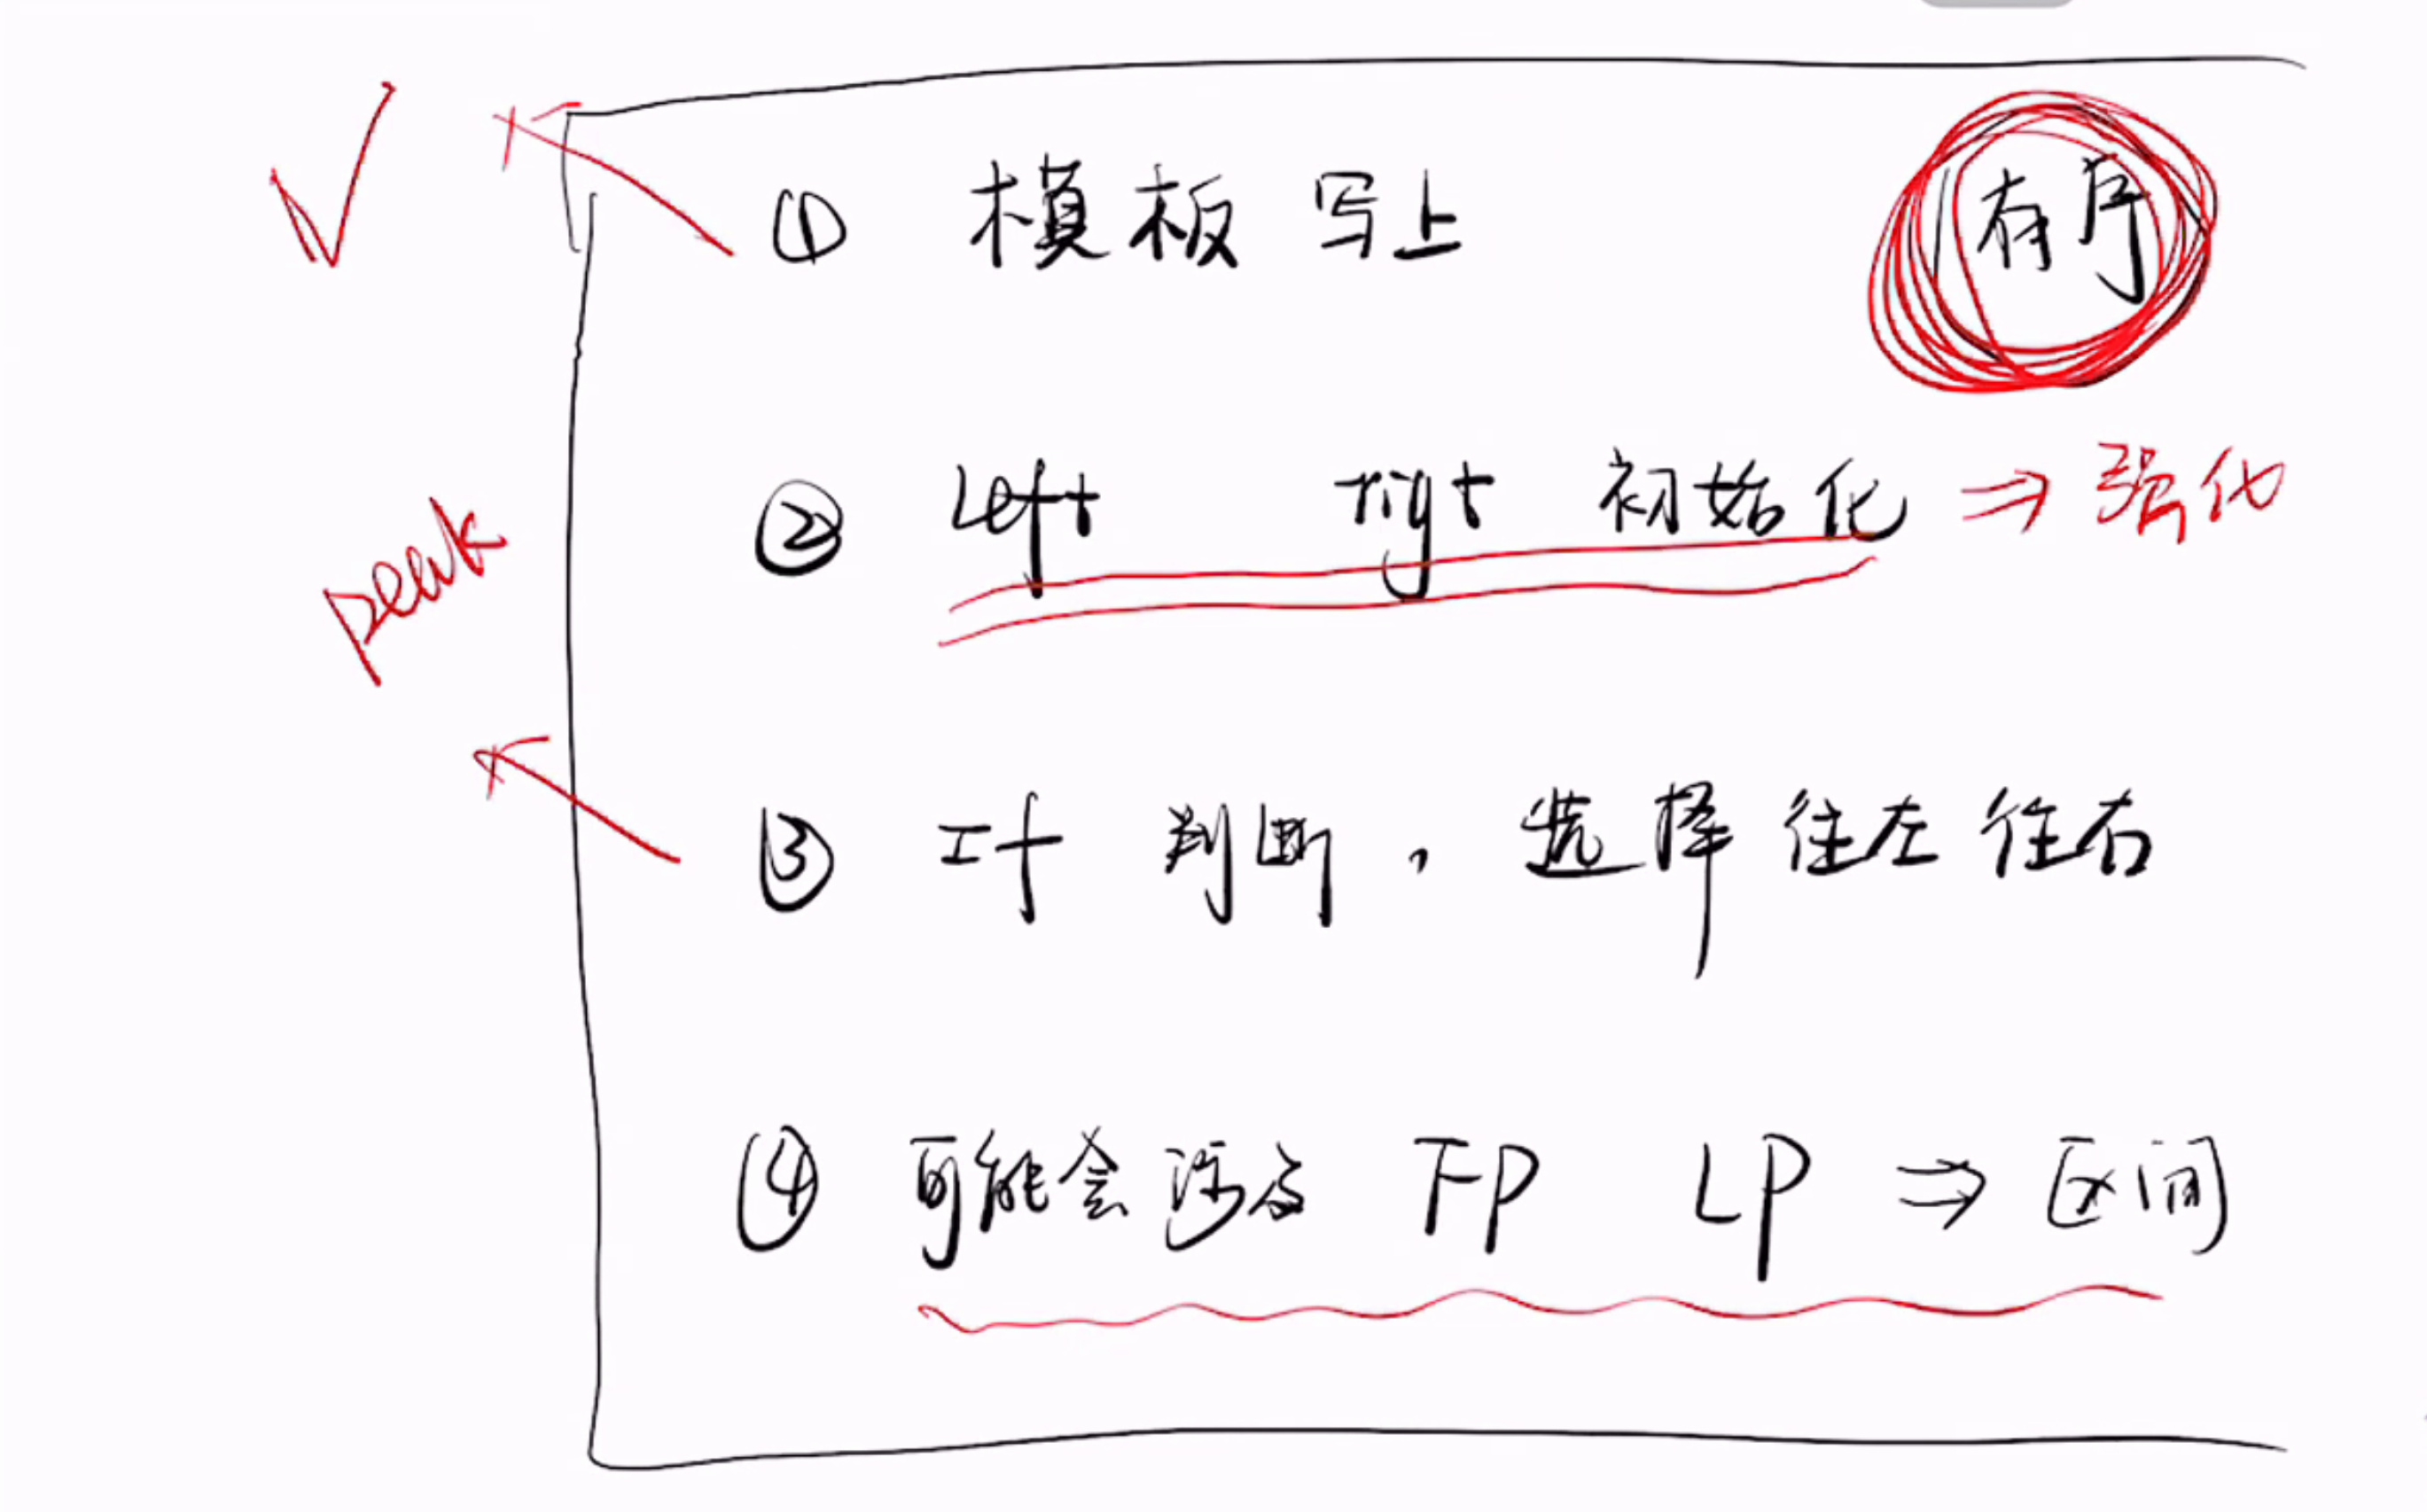 ① 模板写上 有序
② left right 初始化 ⇒ 强化
peak
③ If 判断，选择往左往右
④ 可能会涉及 FP LP ⇒ 区间